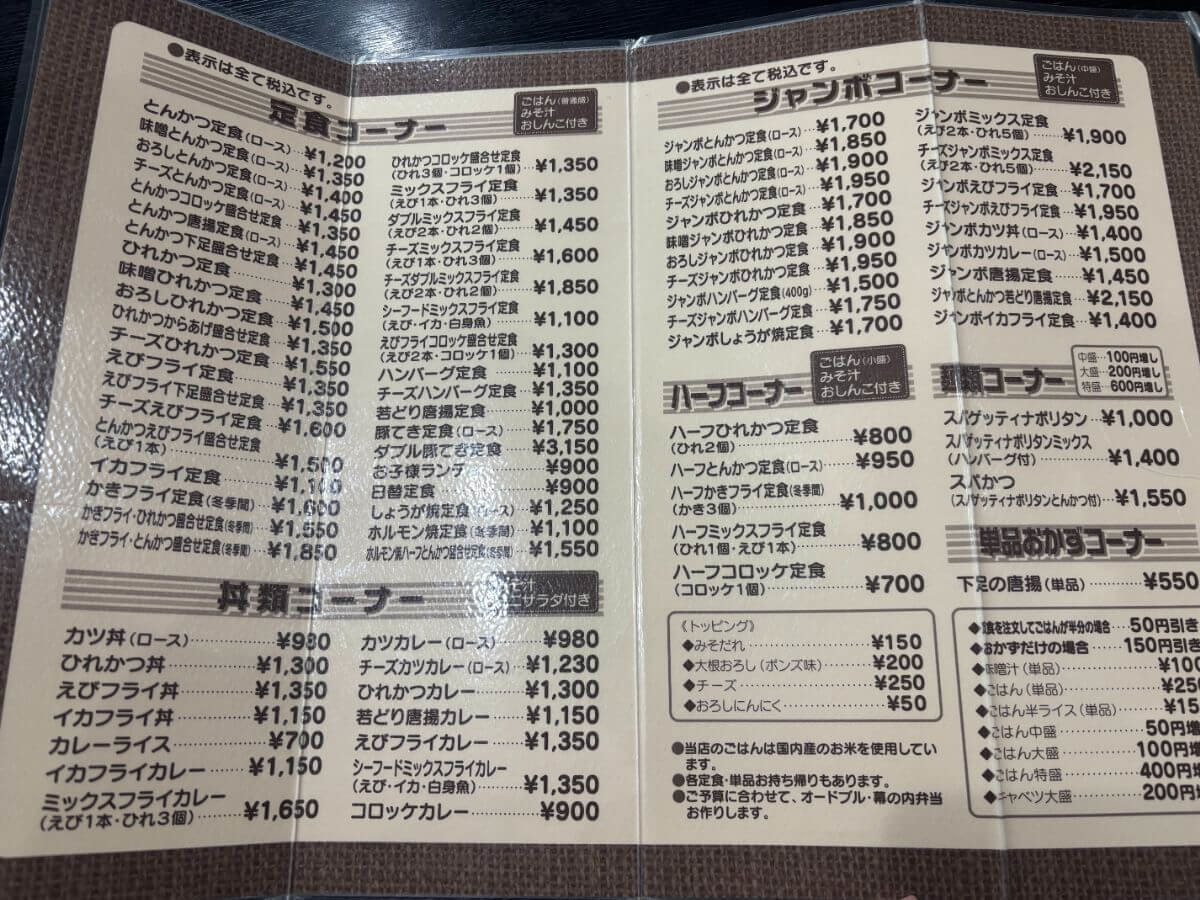 ●表示は全て税込です。
定食コーナー
ごはん(普通盛)
みそ汁
おしんこ付き
とんかつ定食(ロース)…¥1,200
味噌とんかつ定食(ロース)…¥1,350
おろしとんかつ定食(ロース)…¥1,400
チーズとんかつ定食(ロース)…¥1,450
とんかつコロッケ盛合せ定食…¥1,350
とんかつ唐揚定食(ロース)…¥1,450
とんかつ下足盛合せ定食…¥1,450
ひれかつ定食…¥1,300
味噌ひれかつ定食…¥1,450
おろしひれかつ定食…¥1,500
ひれかつからあげ盛合せ定食…¥1,350
チーズひれかつ定食…¥1,550
えびフライ定食…¥1,350
えびフライ下足盛合せ定食…¥1,350
チーズえびフライ定食…¥1,600
とんかつえびフライ盛合せ定食
(えび1本)…¥1,500
イカフライ定食…¥1,100
かきフライ定食(冬季間)…¥1,600
かきフライ・ひれかつ盛合せ定食(冬季間)…¥1,550
かきフライ・とんかつ盛合せ定食(冬季間)…¥1,850
ひれかつコロッケ盛合せ定食
(ひれ3個・コロッケ1個)…¥1,350
ミックスフライ定食
(えび1本・ひれ3個)…¥1,350
ダブルミックスフライ定食
(えび2本・ひれ2個)…¥1,450
チーズミックスフライ定食
(えび1本・ひれ3個)…¥1,600
チーズダブルミックスフライ定食
(えび2本・ひれ2個)…¥1,850
シーフードミックスフライ定食
(えび・イカ・白身魚)…¥1,100
えびフライコロッケ盛合せ定食
(えび2本・コロッケ1個)…¥1,300
ハンバーグ定食…¥1,100
チーズハンバーグ定食…¥1,350
若どり唐揚定食…¥1,000
豚てき定食(ロース)…¥1,750
ダブル豚てき定食…¥3,150
お子様ランチ…¥900
日替定食…¥900
しょうが焼定食(ロース)…¥1,250
ホルモン焼定食(冬季間)…¥1,100
ホルモン焼ハーフとんかつ盛合せ定食(冬季間)…¥1,550
丼類コーナー
サラダ付き
カツ丼(ロース)…¥980
ひれかつ丼…¥1,300
えびフライ丼…¥1,350
イカフライ丼…¥1,150
カレーライス…¥700
イカフライカレー…¥1,150
ミックスフライカレー
(えび1本・ひれ3個)…¥1,650
カツカレー(ロース)…¥980
チーズカツカレー(ロース)…¥1,230
ひれかつカレー…¥1,300
若どり唐揚カレー…¥1,150
えびフライカレー…¥1,350
シーフードミックスフライカレー
(えび・イカ・白身魚)…¥1,350
コロッケカレー…¥900
●表示は全て税込です。
ジャンボコーナー
ごはん(中盛)
みそ汁
おしんこ付き
ジャンボとんかつ定食(ロース)…¥1,700
味噌ジャンボとんかつ定食(ロース)…¥1,850
おろしジャンボとんかつ定食(ロース)…¥1,900
チーズジャンボとんかつ定食(ロース)…¥1,950
ジャンボひれかつ定食…¥1,700
味噌ジャンボひれかつ定食…¥1,850
おろしジャンボひれかつ定食…¥1,900
チーズジャンボひれかつ定食…¥1,950
ジャンボハンバーグ定食(400g)…¥1,500
チーズジャンボハンバーグ定食…¥1,750
ジャンボしょうが焼定食…¥1,700
ジャンボミックス定食
(えび2本・ひれ5個)…¥1,900
チーズジャンボミックス定食
(えび2本・ひれ5個)…¥2,150
ジャンボえびフライ定食…¥1,700
チーズジャンボえびフライ定食…¥1,950
ジャンボカツ丼(ロース)…¥1,400
ジャンボカツカレー(ロース)…¥1,500
ジャンボ唐揚定食…¥1,450
ジャンボとんかつ若どり唐揚定食…¥2,150
ジャンボイカフライ定食…¥1,400
ハーフコーナー
ごはん(小盛)
みそ汁
おしんこ付き
ハーフひれかつ定食
(ひれ2個)…¥800
ハーフとんかつ定食(ロース)…¥950
ハーフかきフライ定食(冬季間)
(かき3個)…¥1,000
ハーフミックスフライ定食
(ひれ1個・えび1本)…¥800
ハーフコロッケ定食
(コロッケ1個)…¥700
《トッピング》
◆みそだれ…¥150
◆大根おろし(ポンズ味)…¥200
◆チーズ…¥250
◆おろしにんにく…¥50
●当店のごはんは国内産のお米を使用してい
ます。
●各定食・単品お持ち帰りもあります。
●ご予算に合わせて、オードブル・幕の内弁当
お作りします。
麺類コーナー
中盛…100円増し
大盛…200円増し
特盛…600円増し
スパゲッティナポリタン…¥1,000
スパゲッティナポリタンミックス
(ハンバーグ付)…¥1,400
スパかつ
(スパゲッティナポリタンとんかつ付)…¥1,550
単品おかずコーナー
下足の唐揚(単品)…¥550
◆定食を注文してごはんが半分の場合…50円引き
◆おかずだけの場合…150円引き
◆味噌汁(単品)…¥100
◆ごはん(単品)…¥250
◆ごはん半ライス(単品)…¥15
◆ごはん中盛…50円増
◆ごはん大盛…100円増
◆ごはん特盛…400円増
◆キャベツ大盛…200円増